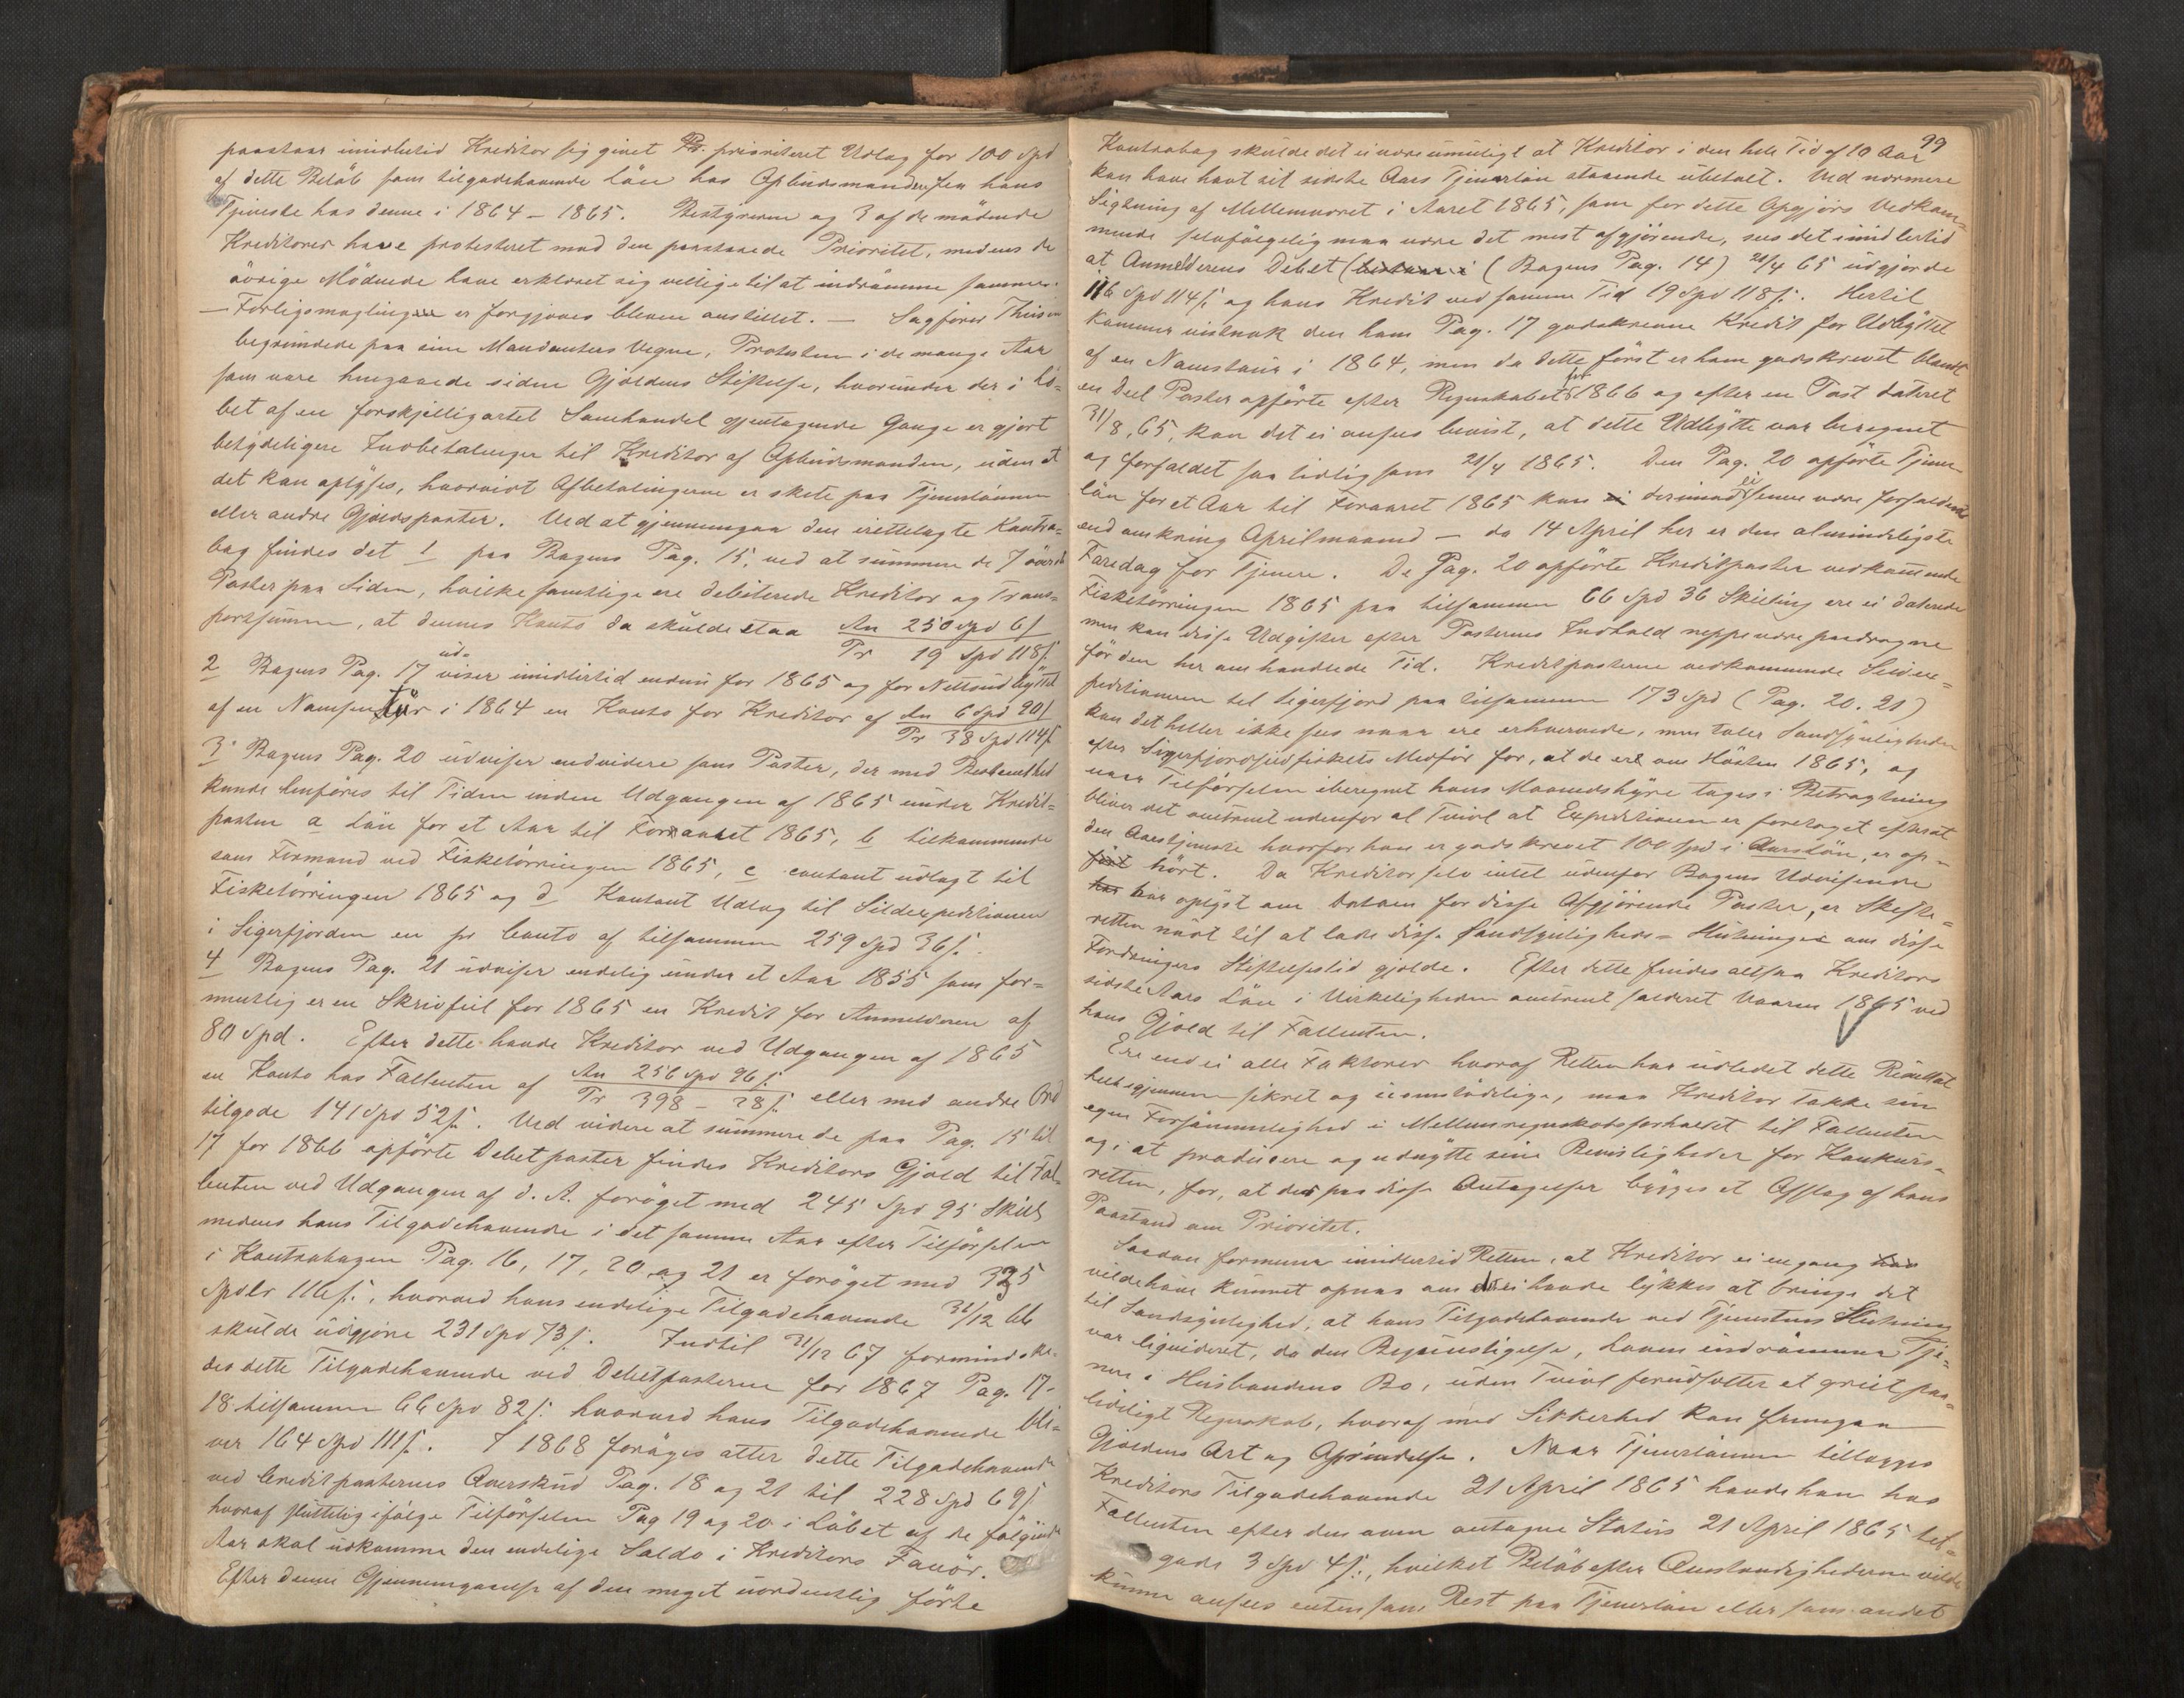 paastaar imidlertid Kreditor sig givet Pr. prioriteret Udlag for 100 Spd
af dette Belöb som tilgodehavende Lön hos Opbudsmanden fra hans
Tjeneste hos denne i 1864 – 1865. Bestyreren og 3 af de mödende
Kreditorer have protesteret mod den paastaaede Prioritet, medens de
övrige Mödende have erklæret sig villige til at indrömme samme.
– Forligsmægling er forgjæves bleven anstillet. – Sagförer Thiis
begrundede paa sine Mandanters Vegne, Protesten i de mange Aar
som vare hengaaede siden Gjældens Stiftelse, hvorunder der i Lö-
bet af en forskjelligartet Samhandel gjentagende Gange er gjort
betydeligere Indbetalinger til Kreditor af Opbudsmanden, uden at
det kan oplyses, hvorvidt Afbetalingerne er skete paa Tjenerlönnen
eller andre Gjældsposter. Ved at gjennemgaa den irettelagte Kontra-
bog findes det 1 paa Bogens Pag. 15, ved at summere de 7 överste
Poster paa Siden, hvilke samtlige ere debiterede Kreditor og Trans-
portsummen, at dennes Konto da skulde staa An 250 Spd 6 s
Pr 19 Spd 118 s
2 Bogens Pag. 17 udviser imidlertid endnu for 1865 og for Nettoudbyttet
af en Namsentur i 1864 en Konto for Kreditor af An 6 Spd 90 s
Pr 38 Spd 114 s
3 Bogens Pag. 20 udviser endvidere som Poster, der med Bestemthed
kunde henföres til Tiden inden Udgangen af 1865 under Kredit-
posten a Lön for et Aar til Foraaret 1865, b tilkommende
som Formand ved Fisketörringen 1865, c contant udlagt til
Fisketörringen 1865 og d Kontant Udlæg til Sildexpeditionen
i Sigerfjorden en pr Conto af tilsammen 259 Spd 36 s.
4 Bogens Pag. 21 udviser endelig under et Aar 1855 som for-
mentlig er en Skrivfeil for 1865 en Kredit for Anmelderen af
80 Spd. Efter dette havde Kreditor ved Udgangen af 1865
en Konto hos Fallenten af An 256 Spd 96 s. eller med andre Ord
Pr 398 – 28 s
tilgode 141 Spd 52 s. Ved videre at summere de paa Pag. 15 til
17 for 1866 opförte Debetposter findes Kreditors Gjæld til Fal-
lenten ved Udgangen af d. A. foröget med 245 Spd 95 Skill
medens hans Tilgodehavende i det samme Aar efter Tilförselen
i Kontrabogen Pag. 16, 17, 20 og 21 er foröget med 335
Spdlr 116 s., hvorved hans endelige Tilgodehavende 31/12 66
skulde udgjöre 231 Spd 73 s. Indtil 31/12 67 formindske-
des dette Tilgodehavende ved Debetposterne for 1867 Pag. 17-
18 tilsammen 66 Spd 82 s. hvorved hans Tilgodehavende bli-
ver 164 Spd 111 s. I 1868 foröges atter dette Tilgodehavende
ved Creditposternes Overskud Pag. 18 og 21 til 228 Spd 69 s
hvoraf sluttelig ifölge Tilförselen Pag 19 og 20 i Löbet af de fölgende
Aar skal udkomme den endelige Saldo i Kreditors Favör.
Efter denne Gjennemgaaelse af den meget uordentlig förte
99
Kontrabog skulde det ei være umuligt at Kreditor i den hele Tid af 10 Aar
kan have havt sit sidste Aars Tjenerlön staaende ubetalt. Ved nærmere
Sigtning af Mellemværet i Aaret 1865, som for dette Opgjörs Vedkom-
mende selvfölgelig maa være det mest afgjörende, sees det imidlertid
at Anmelderens Debet (bestaar i (Bogens Pag. 14) 21/4 65 udgjorde
116 Spd 114 s. og hans Kredit ved samme Tid 19 Spd 118 s. Hertil
kommer vistnok den ham Pag. 17 godskrevne Kredit for Udbyttet
af en Namstur i 1864, men da dette först er ham godskrevet blandt
en Deel Poster opförte efter Regnskabet for 1866 og efter en Post dateret
31/8. 65, kan det ei ansees bevist, at dette Udbytte var beregnet
og forfaldet saa tidlig som 21/4 1865. Den Pag. 20 opförte Tjener-
lön for et Aar til Foraaret 1865 kan ei derimod ei senere være forfalden
end omkring Aprilmaaned – da 14 April her er den almindeligste
Faredag for Tjenere. De Pag. 20 opförte Kreditposter vedkommende
Fisketörringen 1865 paa tilsammen 66 Spd 36 Skilling ere ei daterede
men kan disse Udgifter efter Posternes Indhold neppe være paadragne
för den her omhandlede Tid. Kreditposterne vedkommende Sildex-
peditionen til Sigerfjord paa tilsammen 173 Spd (Pag. 20. 21)
kan det heller ikke sees naar ere erhvervede, men taler Sandsynligheden
efter Sigerfjordsildfiskets Medför for, at de ere om Hösten 1865, og
naar Tilförselen iberegnet hans Maanedshyre tages i Betragtning
bliver det omtrent udenfor al Tvivl at Expeditionen er foretaget efterat
den Aarstjeneste hvorfor han er godskrevet 100 Spd i Aarslön, er op-
fört hört. Da Kreditor selv intet udenfor Bogens Udvisende
har har oplyst om Datoen for disse Afgjörende Poster, er Skifte-
retten nödt til at lade disse Sandsynligheds-Slutninger om disse
Fordringers Stiftelsestid gjælde. Efter dette findes altsaa Kreditors
sidste Aars Lön i Virkeligheden omtrent salderet Vaaren 1865 ved
hans Gjæld til Fallenten.
Ere end ei alle Faktorer hvoraf Retten har udledet dette Resultat
helt igjennem sikret og uomstödelige, maa Kreditor takke sin
egen Forsömmelighed i Mellemregnskabsforholdet til Fallenten
og i at producere og udnytte sine Bevisligheder for Konkurs-
retten, for, at der paa disse Antagelser bygges et Afslag af hans
Paastand om Prioritet.
Saadan formener imidlertid Retten, at Kreditor ei engang har
vilde have kunnet opnaa om det ei havde lykkes at bringe det
til Sandsynlighed, at hans Tilgodehavende ved Tjenestens Slutning
var liqvideret, da den Begunstigelse, Loven indrömmer Tje-
nere i Husbondens Bo, uden Tvivl forudsætter et greit paa-
lideligt Regnskab, hvoraf med Sikkerhed kan fremgaa
Gjældens Art og Oprindelse. Naar Tjenerlönnen tillægges
Kreditors Tilgodehavende 21 April 1865 havde han hos
Fallenten efter den oven antagne Status 21 April 1865 til-
gode 3 Spd 4 s., hvilket Belöb efter Omstændighederne vilde
kunne ansees enten som Rest paa Tjenerlön eller som andet